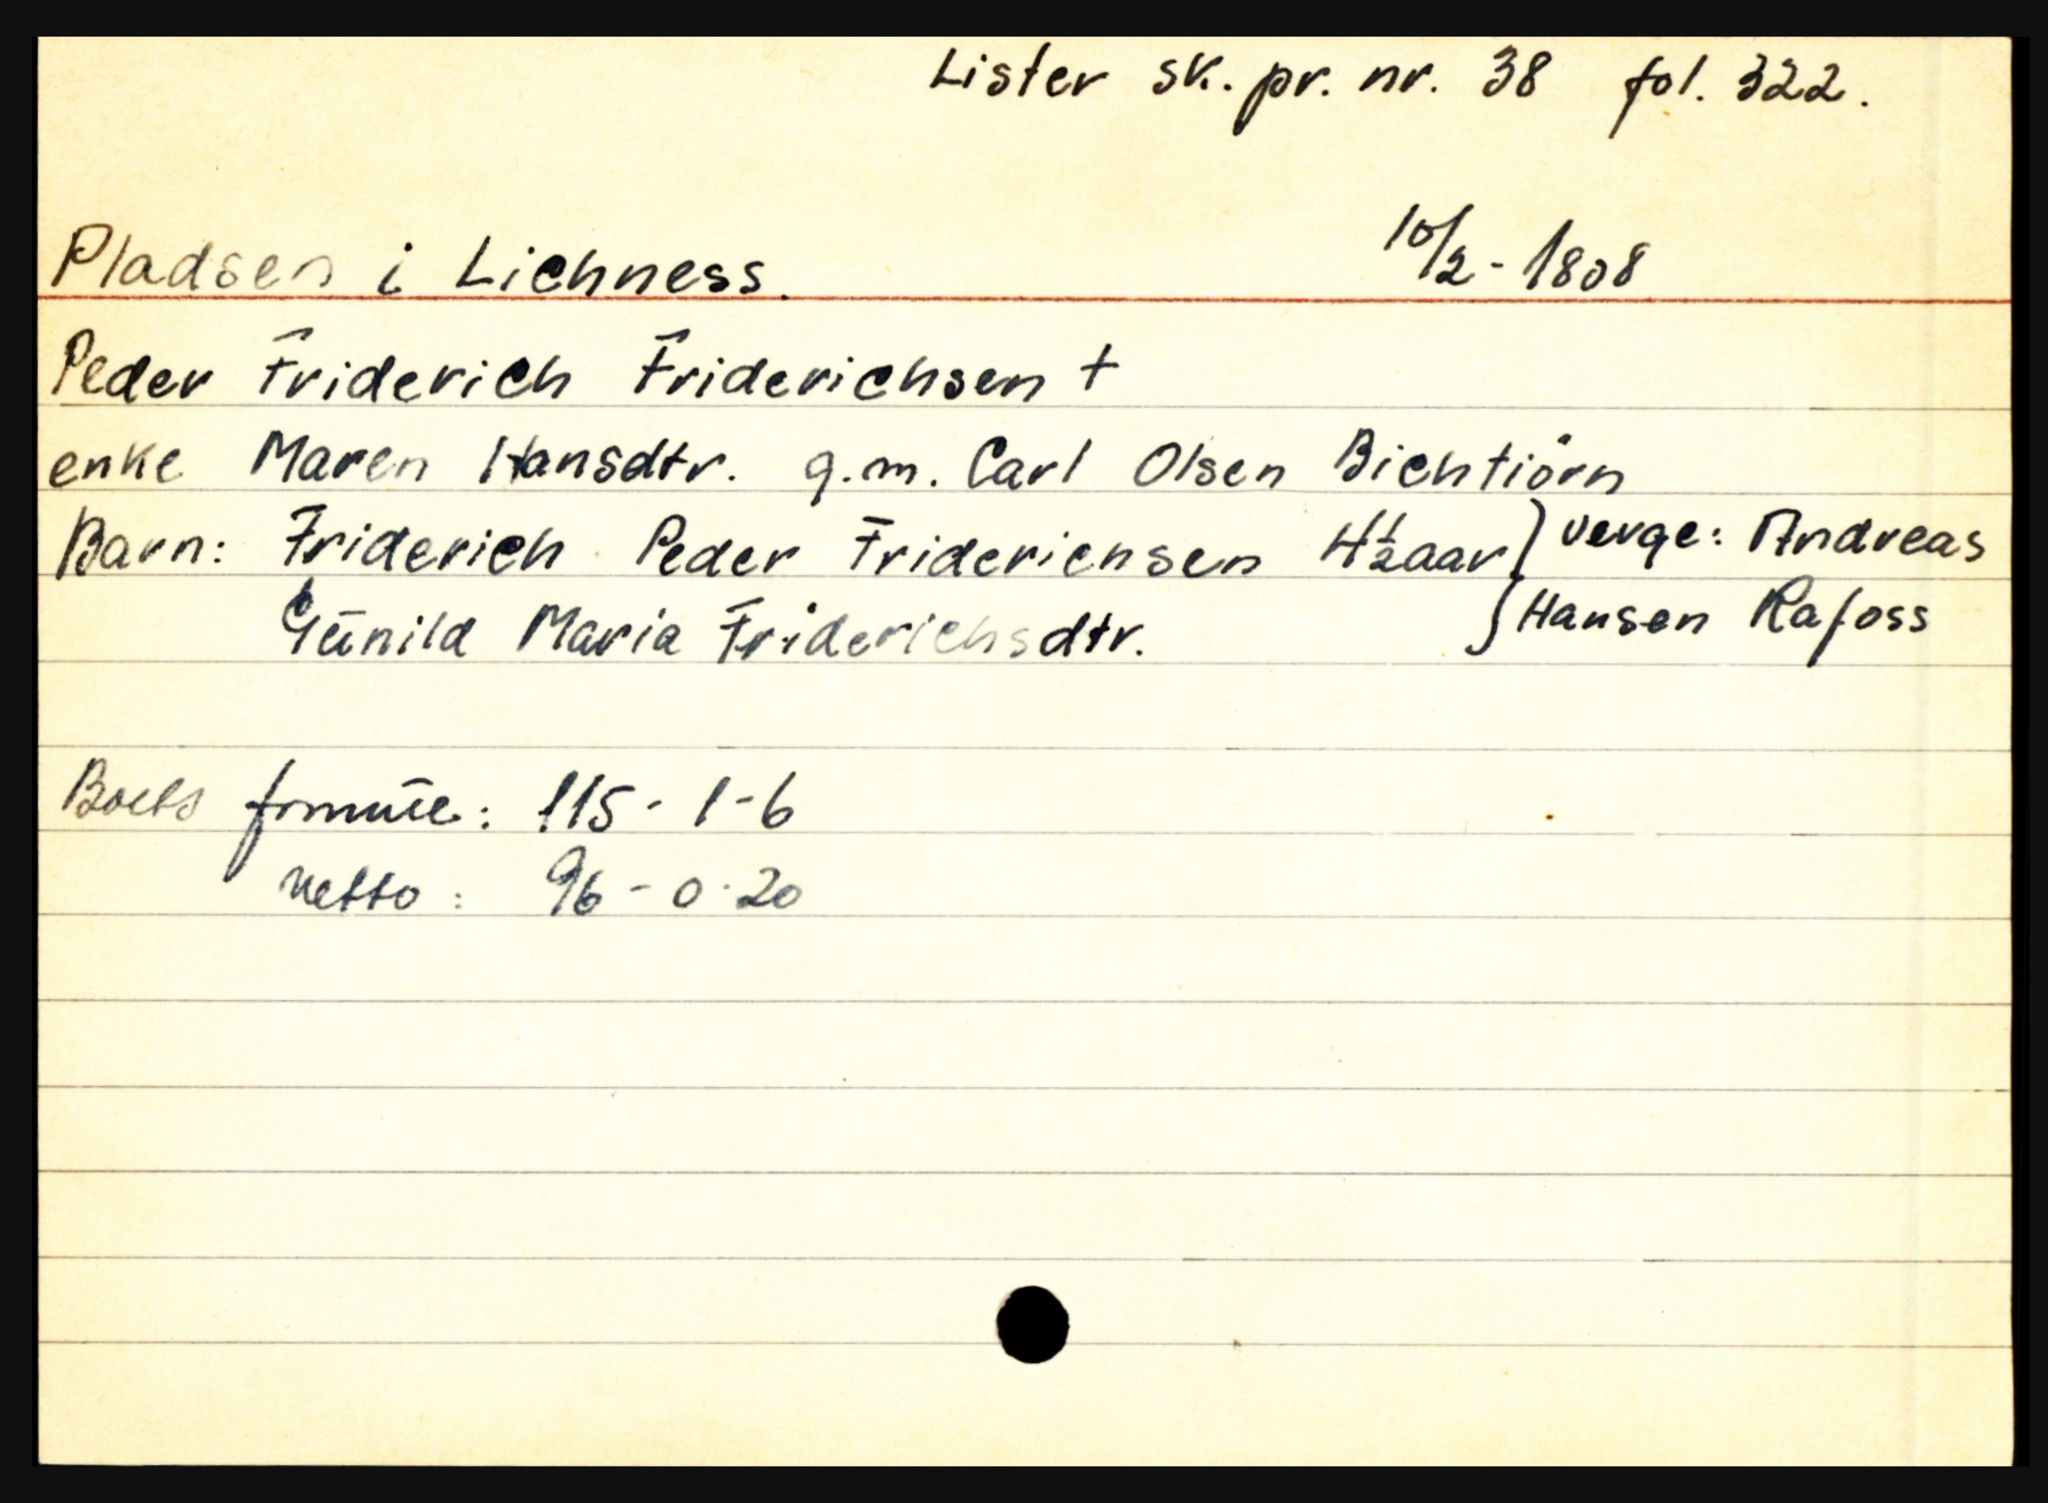 Lister sk. pr. nr. 38 fol. 322.
Pladsen i Lichness. 10/2 - 1808
Peder Friderich Friderichsen +
enke Maren Hansdtr. g.m. Carl Olsen Bichtiörn
Barn: Friderich Peder Friderichsen 4½ aar } verge: Andreas
Gunild Maria Friderichsdtr. } Hansen Rafoss
Boets formue: 115 - 1 - 6
netto: 96 - 0 - 20